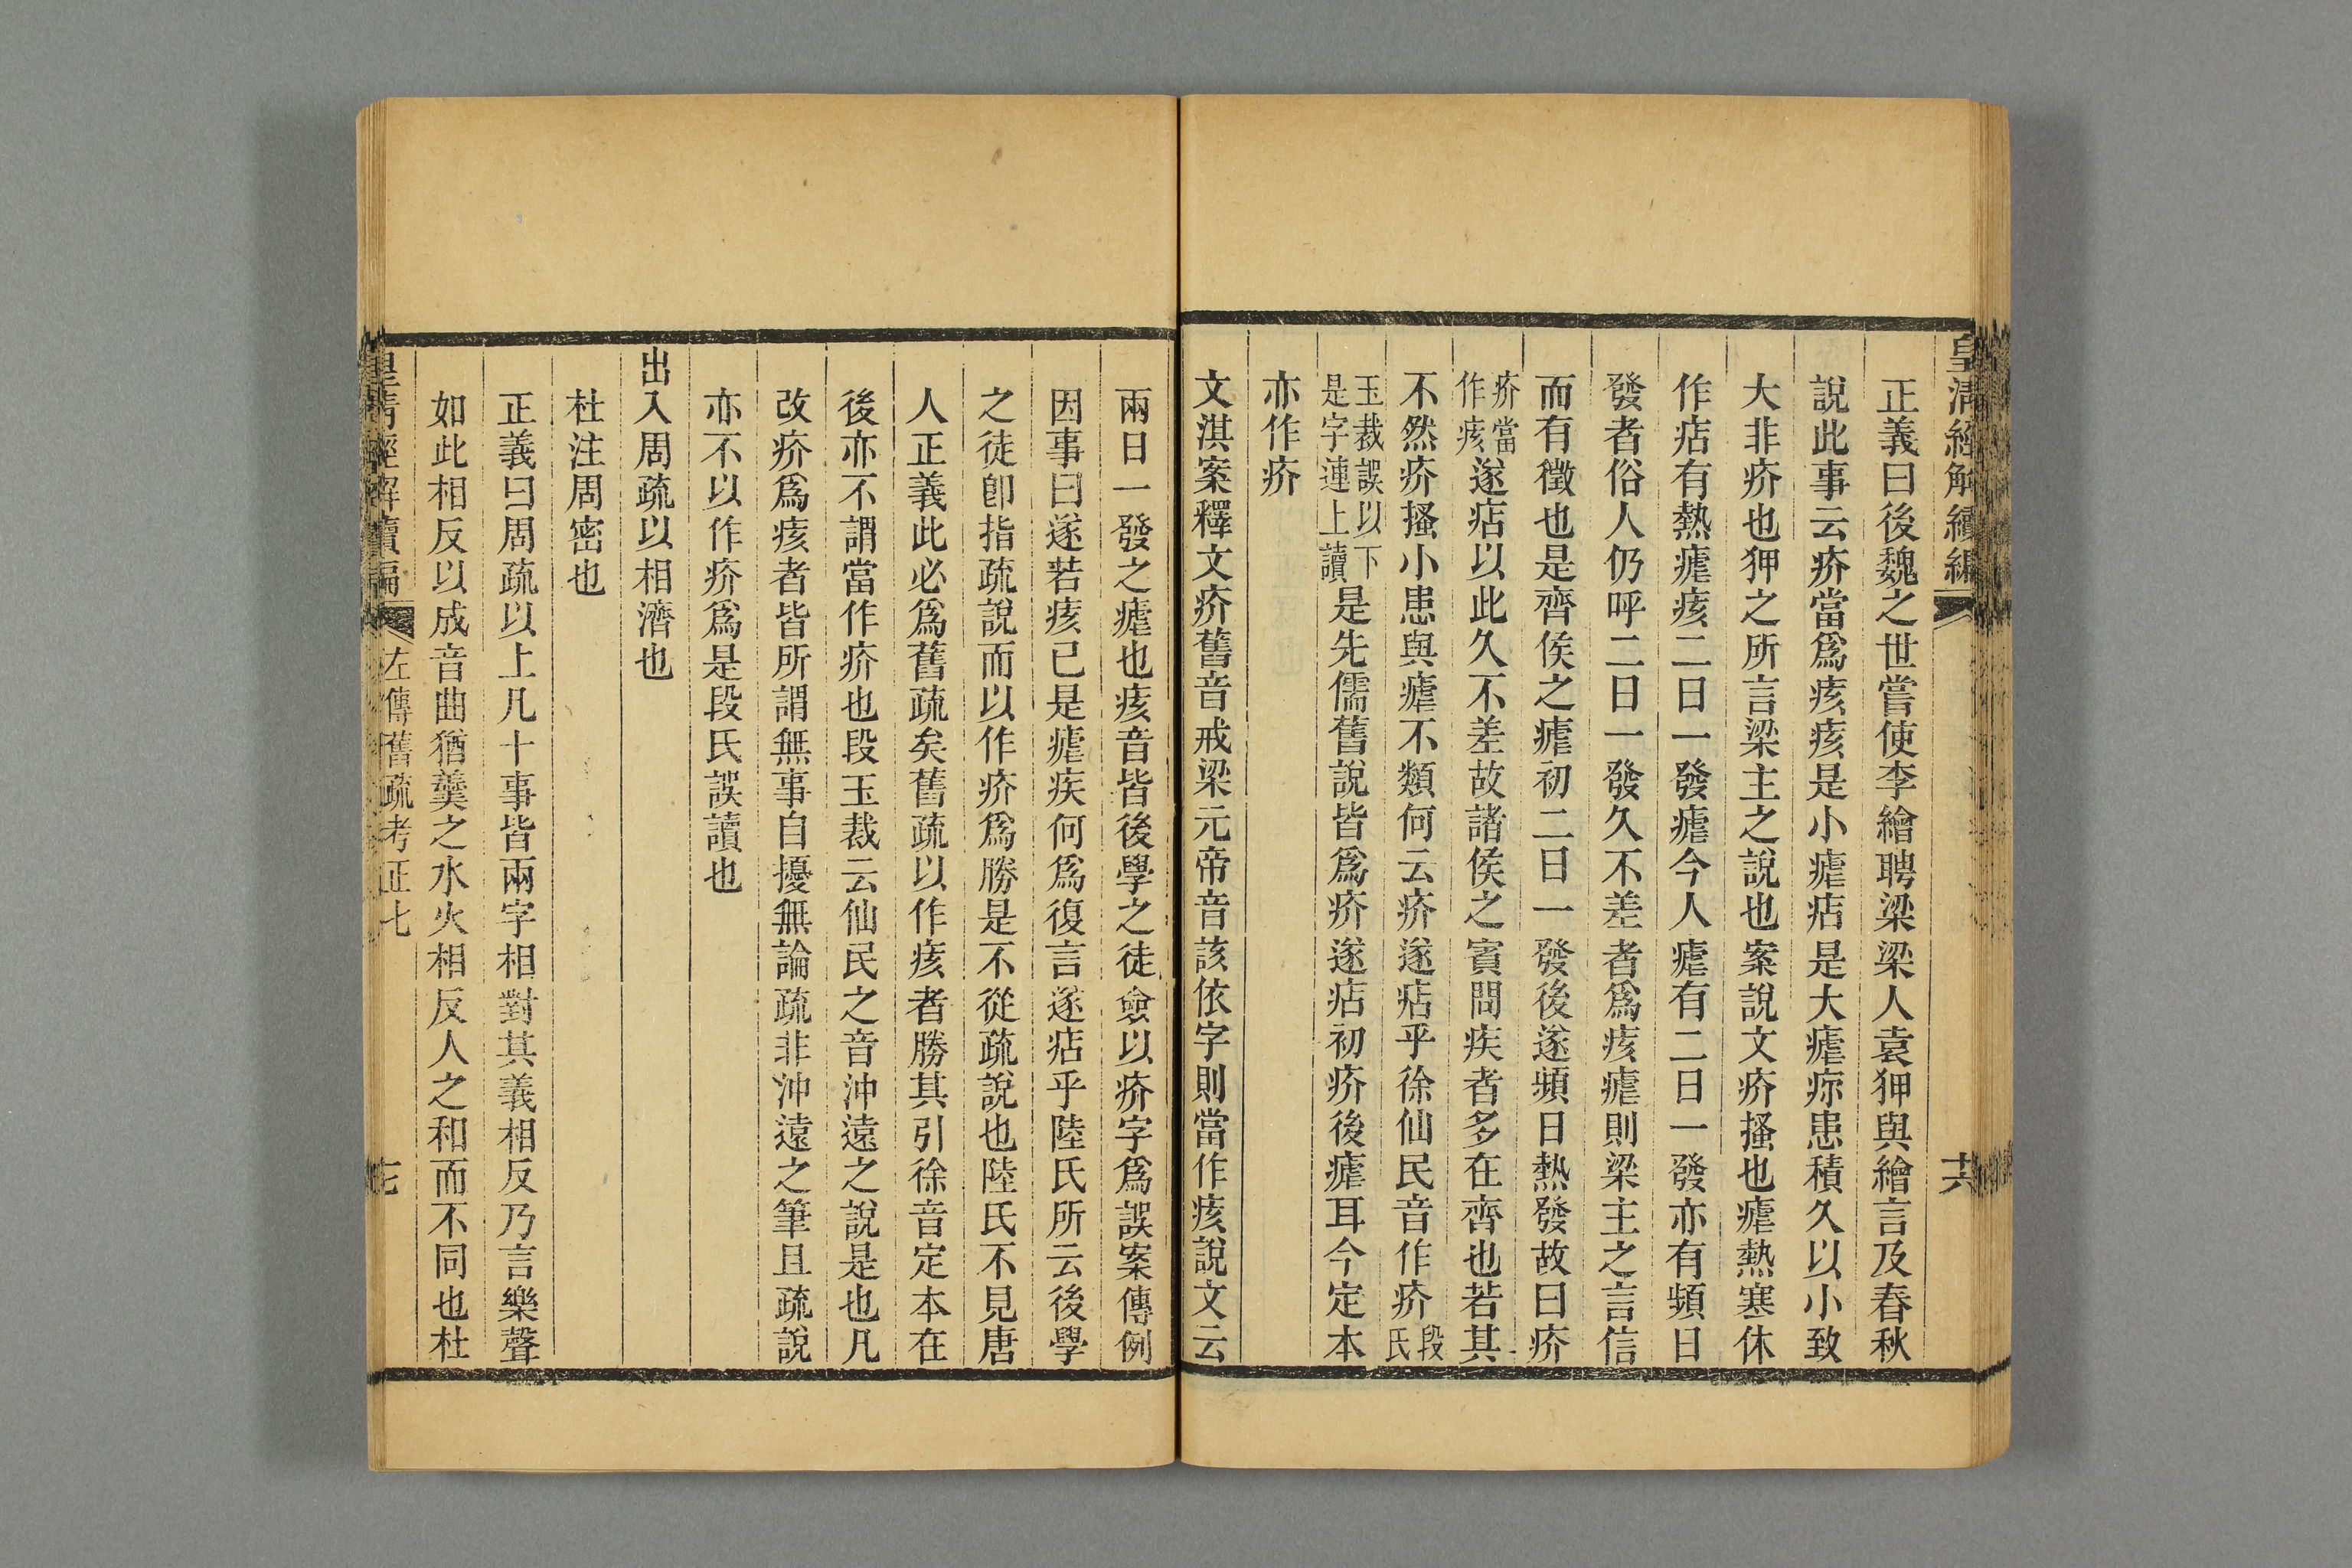 皇清經解續編
十六
正義曰後魏之世嘗使李繪聘梁梁人袁狎與繪言及春秋
說此事云疥當爲痎痎是小瘧痁是大瘧疹患積久以小致
大非疥也狎之所言梁主之說也案說文疥搔也瘧熱寒休
作痁有熱瘧痎二日一發瘧今人瘧有二日一發亦有頻日
發者俗人仍呼二日一發久不差者爲痎瘧則梁主之言信
而有徵也是齊侯之瘧初二日一發後遂頻日熱發故曰疥
疥當作痎遂痁以此久不差故諸侯之賓問疾者多在齊也若其
不然疥搔小患與瘧不類何云疥遂痁乎徐仙民音作疥段氏
玉裁誤以下是字連上讀是先儒舊說皆爲疥遂痁初疥後瘧耳今定本
亦作疥
文淇案釋文疥舊音戒梁元帝音該依字則當作痎說文云
兩日一發之瘧也痎音皆後學之徒僉以疥字爲誤案傳例
因事曰遂若痎已是瘧疾何爲復言遂痁乎陸氏所云後學
之徒卽指疏說而以作疥爲勝是不從疏說也陸氏不見唐
人正義此必爲舊疏矣舊疏以作痎者勝其引徐音定本在
後亦不謂當作疥也段玉裁云仙民之音沖遠之說是也凡
改疥爲痎者皆所謂無事自擾無論疏非沖遠之筆且疏說
亦不以作疥爲是段氏誤讀也
出入周疏以相濟也
杜注周密也
正義曰周疏以上凡十事皆兩字相對其義相反乃言樂聲
如此相反以成音曲猶羹之水火相反人之和而不同也杜
皇清經解續編
左傳舊疏考正七
七